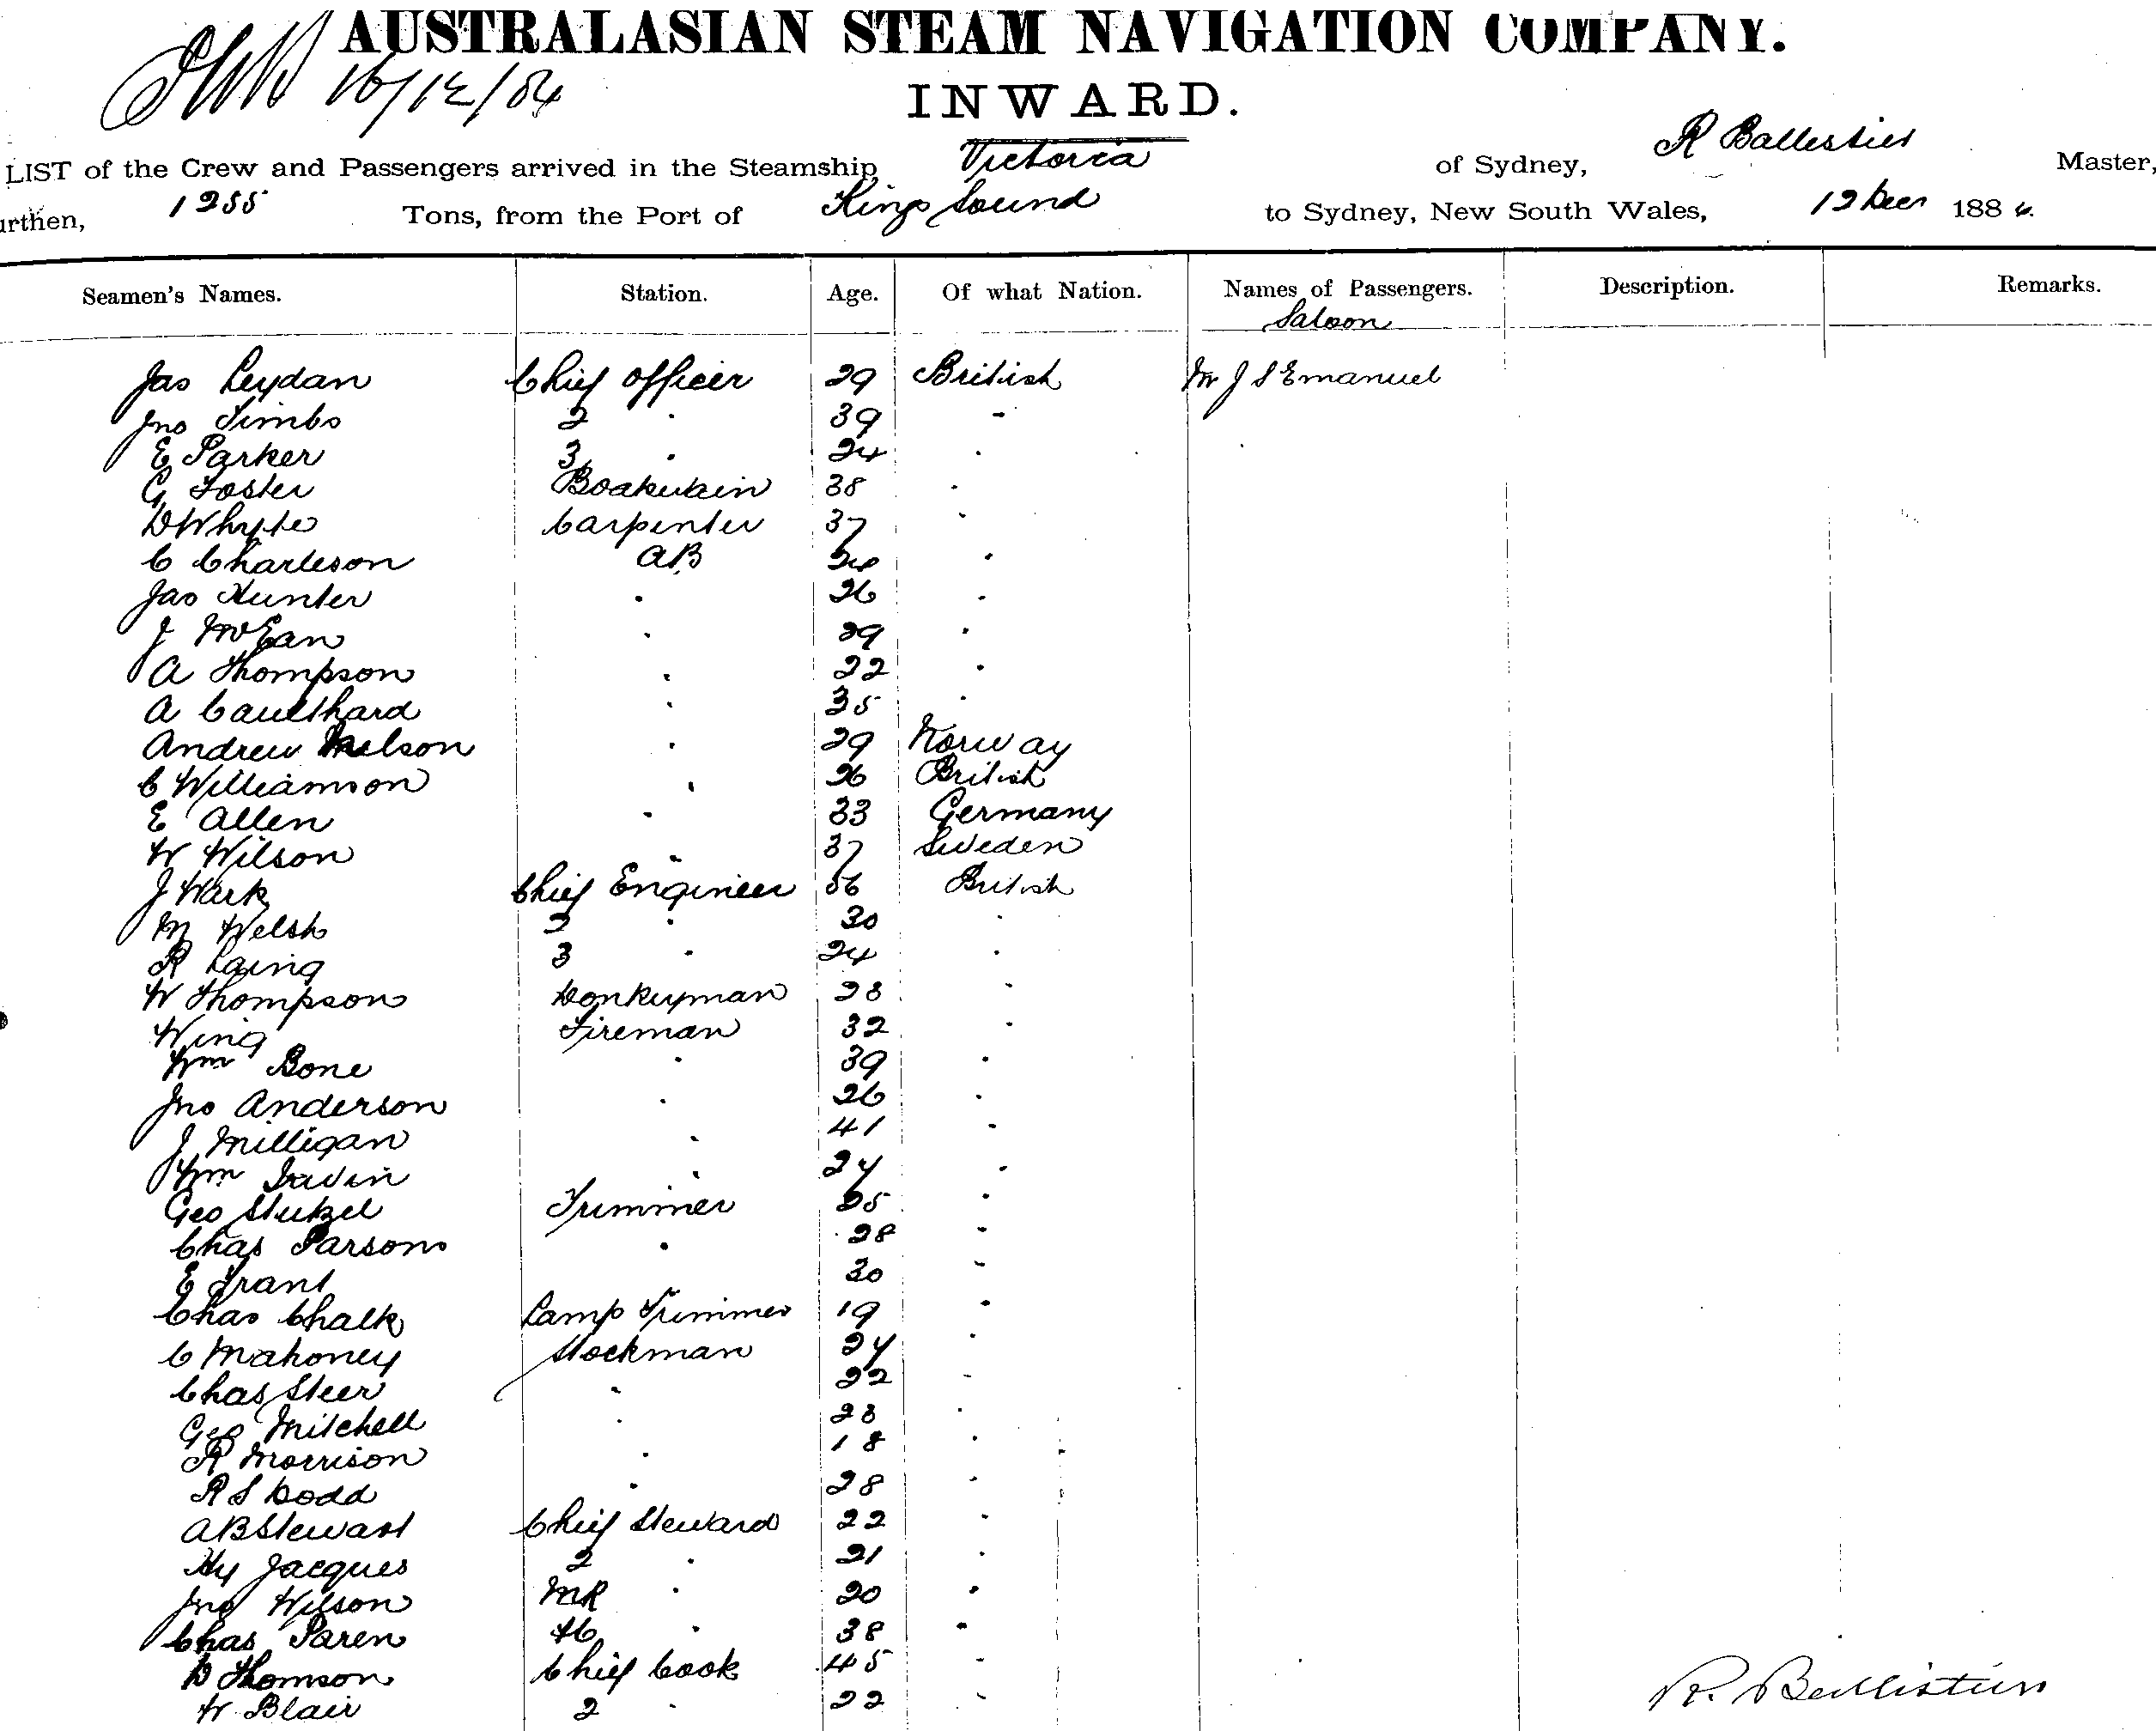 AUSTRALASIAN STEAM NAVIGATION COMPANY.
16/12/84
INWARD.
LIST of the Crew and Passengers arrived in the Steamship Victoria of Sydney, R Ballestier Master,
urthen, 1255 Tons, from the Port of Kings Sound to Sydney, New South Wales, 12 Decr 1884.
Seamen's Names. Station. Age. Of what Nation. Names of Passengers. Description. Remarks.
Saloon
Jas Leydan Chief Officer 29 British Mr J S Emanuel
Jno Timbs 2 " 39 "
E Parker 3 " 24 "
G Foster Boatswain 38 "
D Whyte Carpenter 37 "
C Charleson AB 24 "
Jas Hunter " 26 "
J McEan " 29 "
A Thompson " 22 "
A Caulthard " 35 "
Andrew Nelson " 29 Norway
C Williamson " 26 British
E Allen " 33 Germany
W Wilson " 37 Sweden
J Wark Chief Engineer 56 British
M Welsh 2 " 30 "
R Laing 3 " 24 "
W Thompson Donkeyman 28 "
Wing Fireman 32 "
Wm Bone " 39 "
Jno Anderson " 26 "
J Milligan " 41 "
Wm " 24 "
Geo Trimmer 25 "
Chas Parsons " 28 "
E Grant 30 "
Chas Chalk Lamp Trimmer 19 "
C Mahoney Stockman 24 "
Chas Steer " 22 "
Geo Mitchell " 23 "
R Morrison " 18 "
R S Dodd " 28 "
A B Stewart Chief Steward 22 "
Hy Jacques 2 " 21 "
Jno Wilson MR " 20 "
Chas Paren " 38 "
D Thomson Chief Cook 45 "
W Blair 2 " 22 "
R. Ballistier